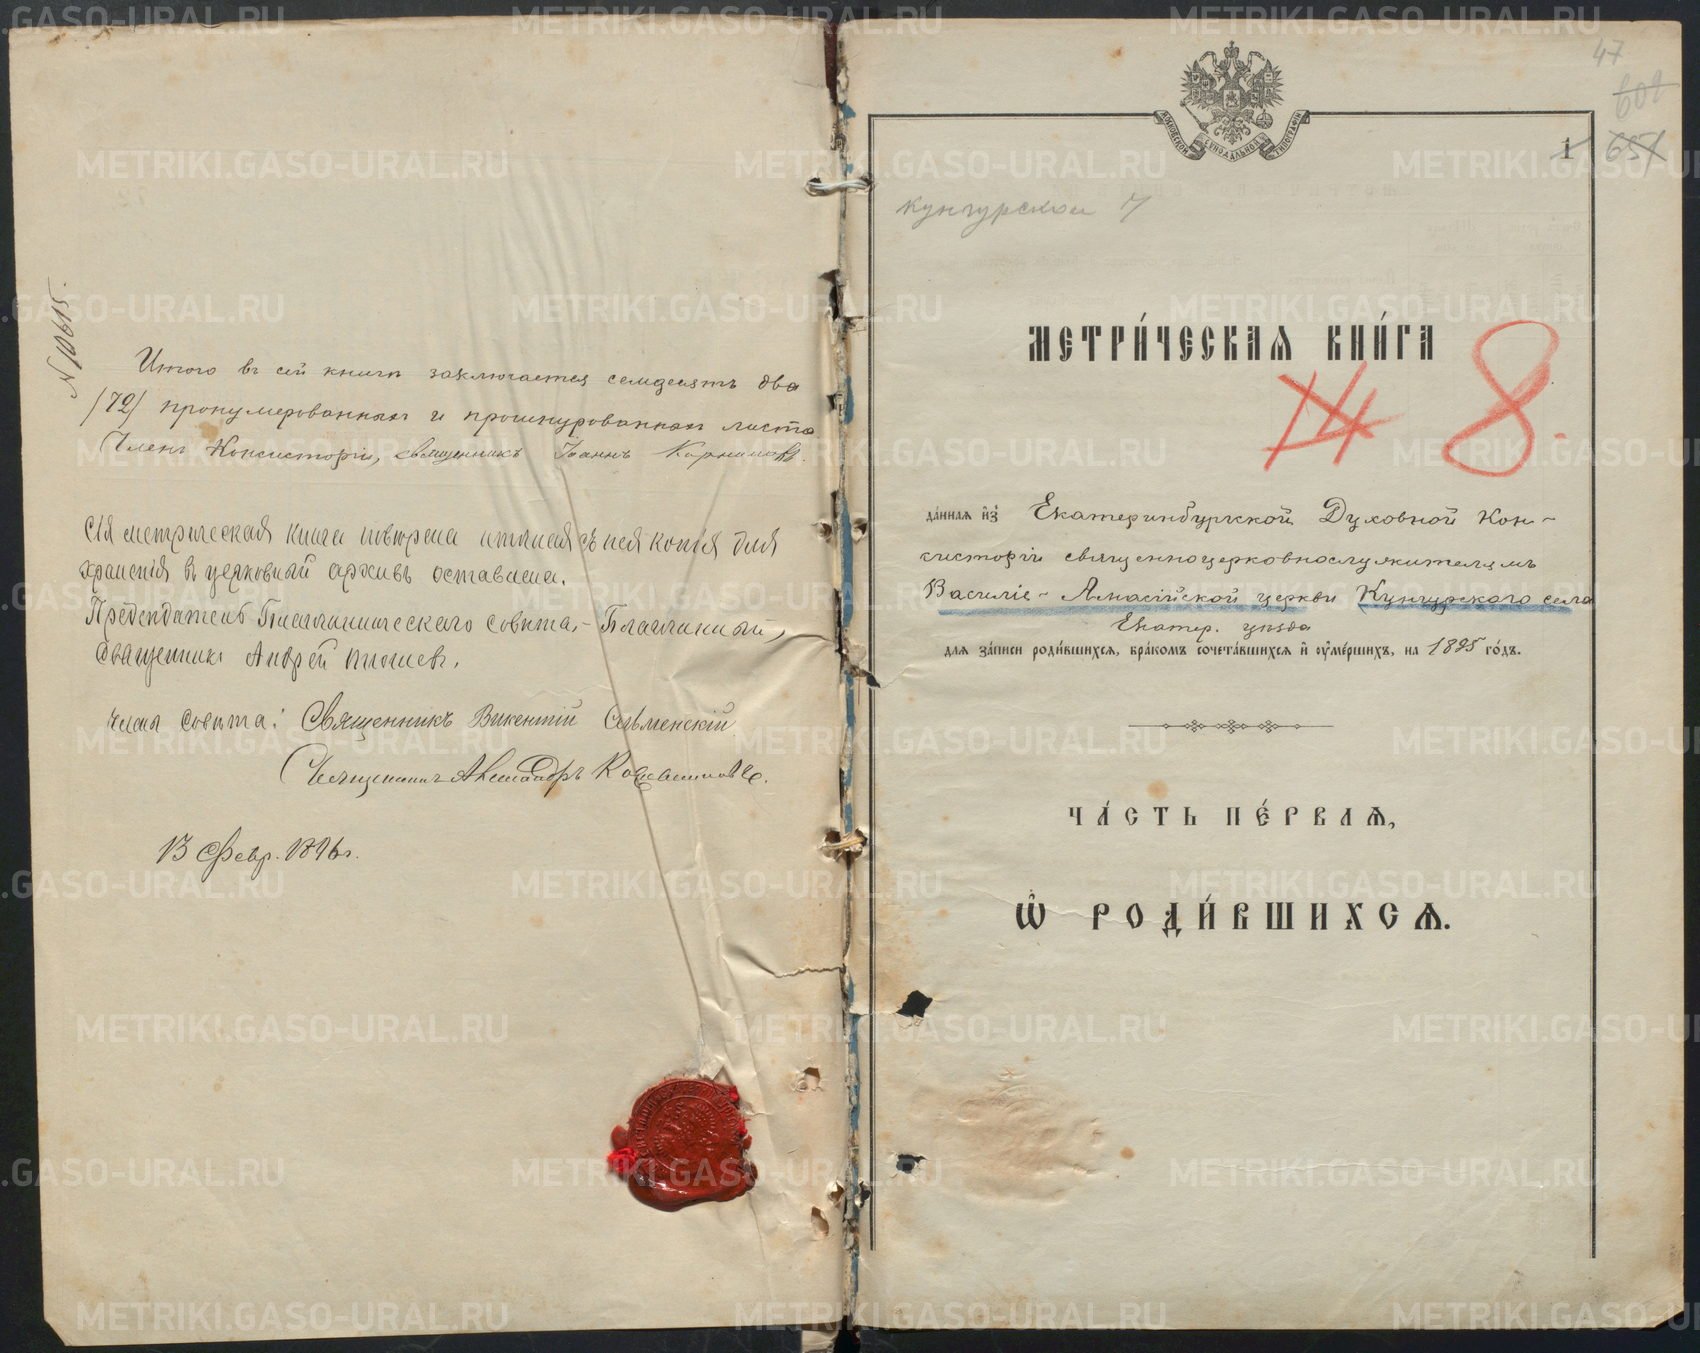 № 10615.
Итого въ сей книгѣ заключается семдесятъ два
/72/ пронумерованныхъ и прошнурованныхъ листа
Членъ Консисторіи, священникъ Іоаннъ
Сія метрическая книга повѣрена и точная съ нея копія для
храненія въ церковный архивъ оставлена.
Предсѣдатель Благочинническаго совѣта, - Благочинный,
Священникъ Андрей
Члены Совѣта: Священникъ Викентій
Священникъ Александръ
13 Февр. 1896 г.
47
602
1 651
МОСКОВСКОЙ СѴНОДАЛЬНОЙ ТИПОГРАФІИ
Кунгурское 7
МЕТРИ́ЧЕСКАЯ КНИ́ГА
8.
да́нная и҆з̾ Екатеринбургской Духовной Кон-
систоріи священноцерковнослужителямъ
Василіе-Амасійской церкви Кунгурского села
Екатер. уѣзда
для за́писи роди́вшихся, бра́комъ сочета́вшихся и҆ ᲂу҆ме́ршихъ, на 1895 го́дъ.
ЧА́СТЬ ПЕ́РВАЯ,
Ѽ РОДИ́ВШИХСЯ.
METRIKI.GASO-URAL.RU